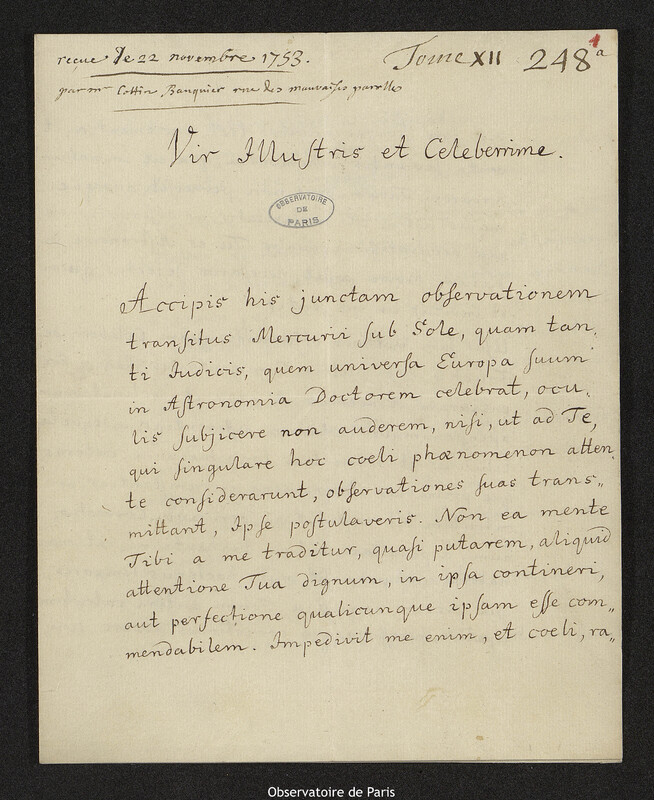 reçue le 22 novembre 1753.
Tome XII 248a
1
par mr Cottin Banquier rue des mauvaises parolles
Vir Illustris et Celeberrime.
OBSERVATOIRE
DE
PARIS
Accipis his junctam observationem
transitus Mercurii sub Sole, quam tan,
ti Iudicis, quem universa Europa suum
in Astronomia Doctorem celebrat, ocu,
lis subjicere non auderem, nisi, ut ad Te,
qui singulare hoc coeli phænomenon atten,
te considerarunt, observationes suas trans„
mittant, Ipse postulaveris. Non ea mente
Tibi a me traditur, quasi putarem, aliquid
attentione Tua dignum, in ipsa contineri,
aut perfectione qualicunque ipsam esse com„
mendabilem. Impedivit me enim, et coeli, ra„
Observatoire de Paris